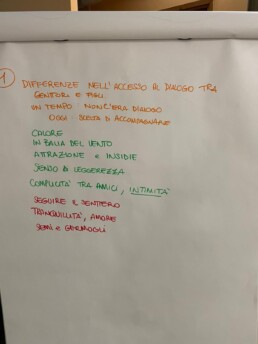 1
DIFFERENZE NELL'ACCESSO AL DIALOGO TRA
GENITORI E FIGLI
UN TEMPO NON C'ERA DIALOGO
OGGI - DI ACCOMPAGNARE
CALORE
IN BALIA DEL VENTO
ATTRAZIONE e INSIDIE
SENSO DI LEGGEREZZA
COMPLICITÀ TRA AMICI, INTIMITÀ
SEGUIRE IL SENTIERO
TRANQUILLITÀ, AMORE
SEMI e GERMOGLI